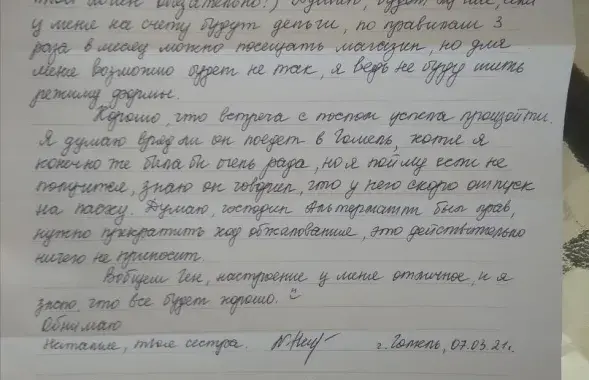 у меня на счету будут деньги, по правилам 3
раза в месяц можно посещать магазин, но для
меня возможно будет не так, я ведь не буду шить
режиму формы.
Хорошо, что встреча с послом успела пройти.
Я думаю вряд ли он поедет в Гомель, хотя я
конечно же была бы очень рада, но я пойму если не
получится, знаю он говорил, что у него скоро отпуск
на пасху. Думаю, господин Альтерматт был прав,
нужно прекратить ход обжалования, это действительно
ничего не приносит.
Вобщем Ген, настроение у меня отличное, и я
знаю, что все будет хорошо.
Обнимаю
Наталья, твоя сестра.
г. Гомель, 07.03.21г.